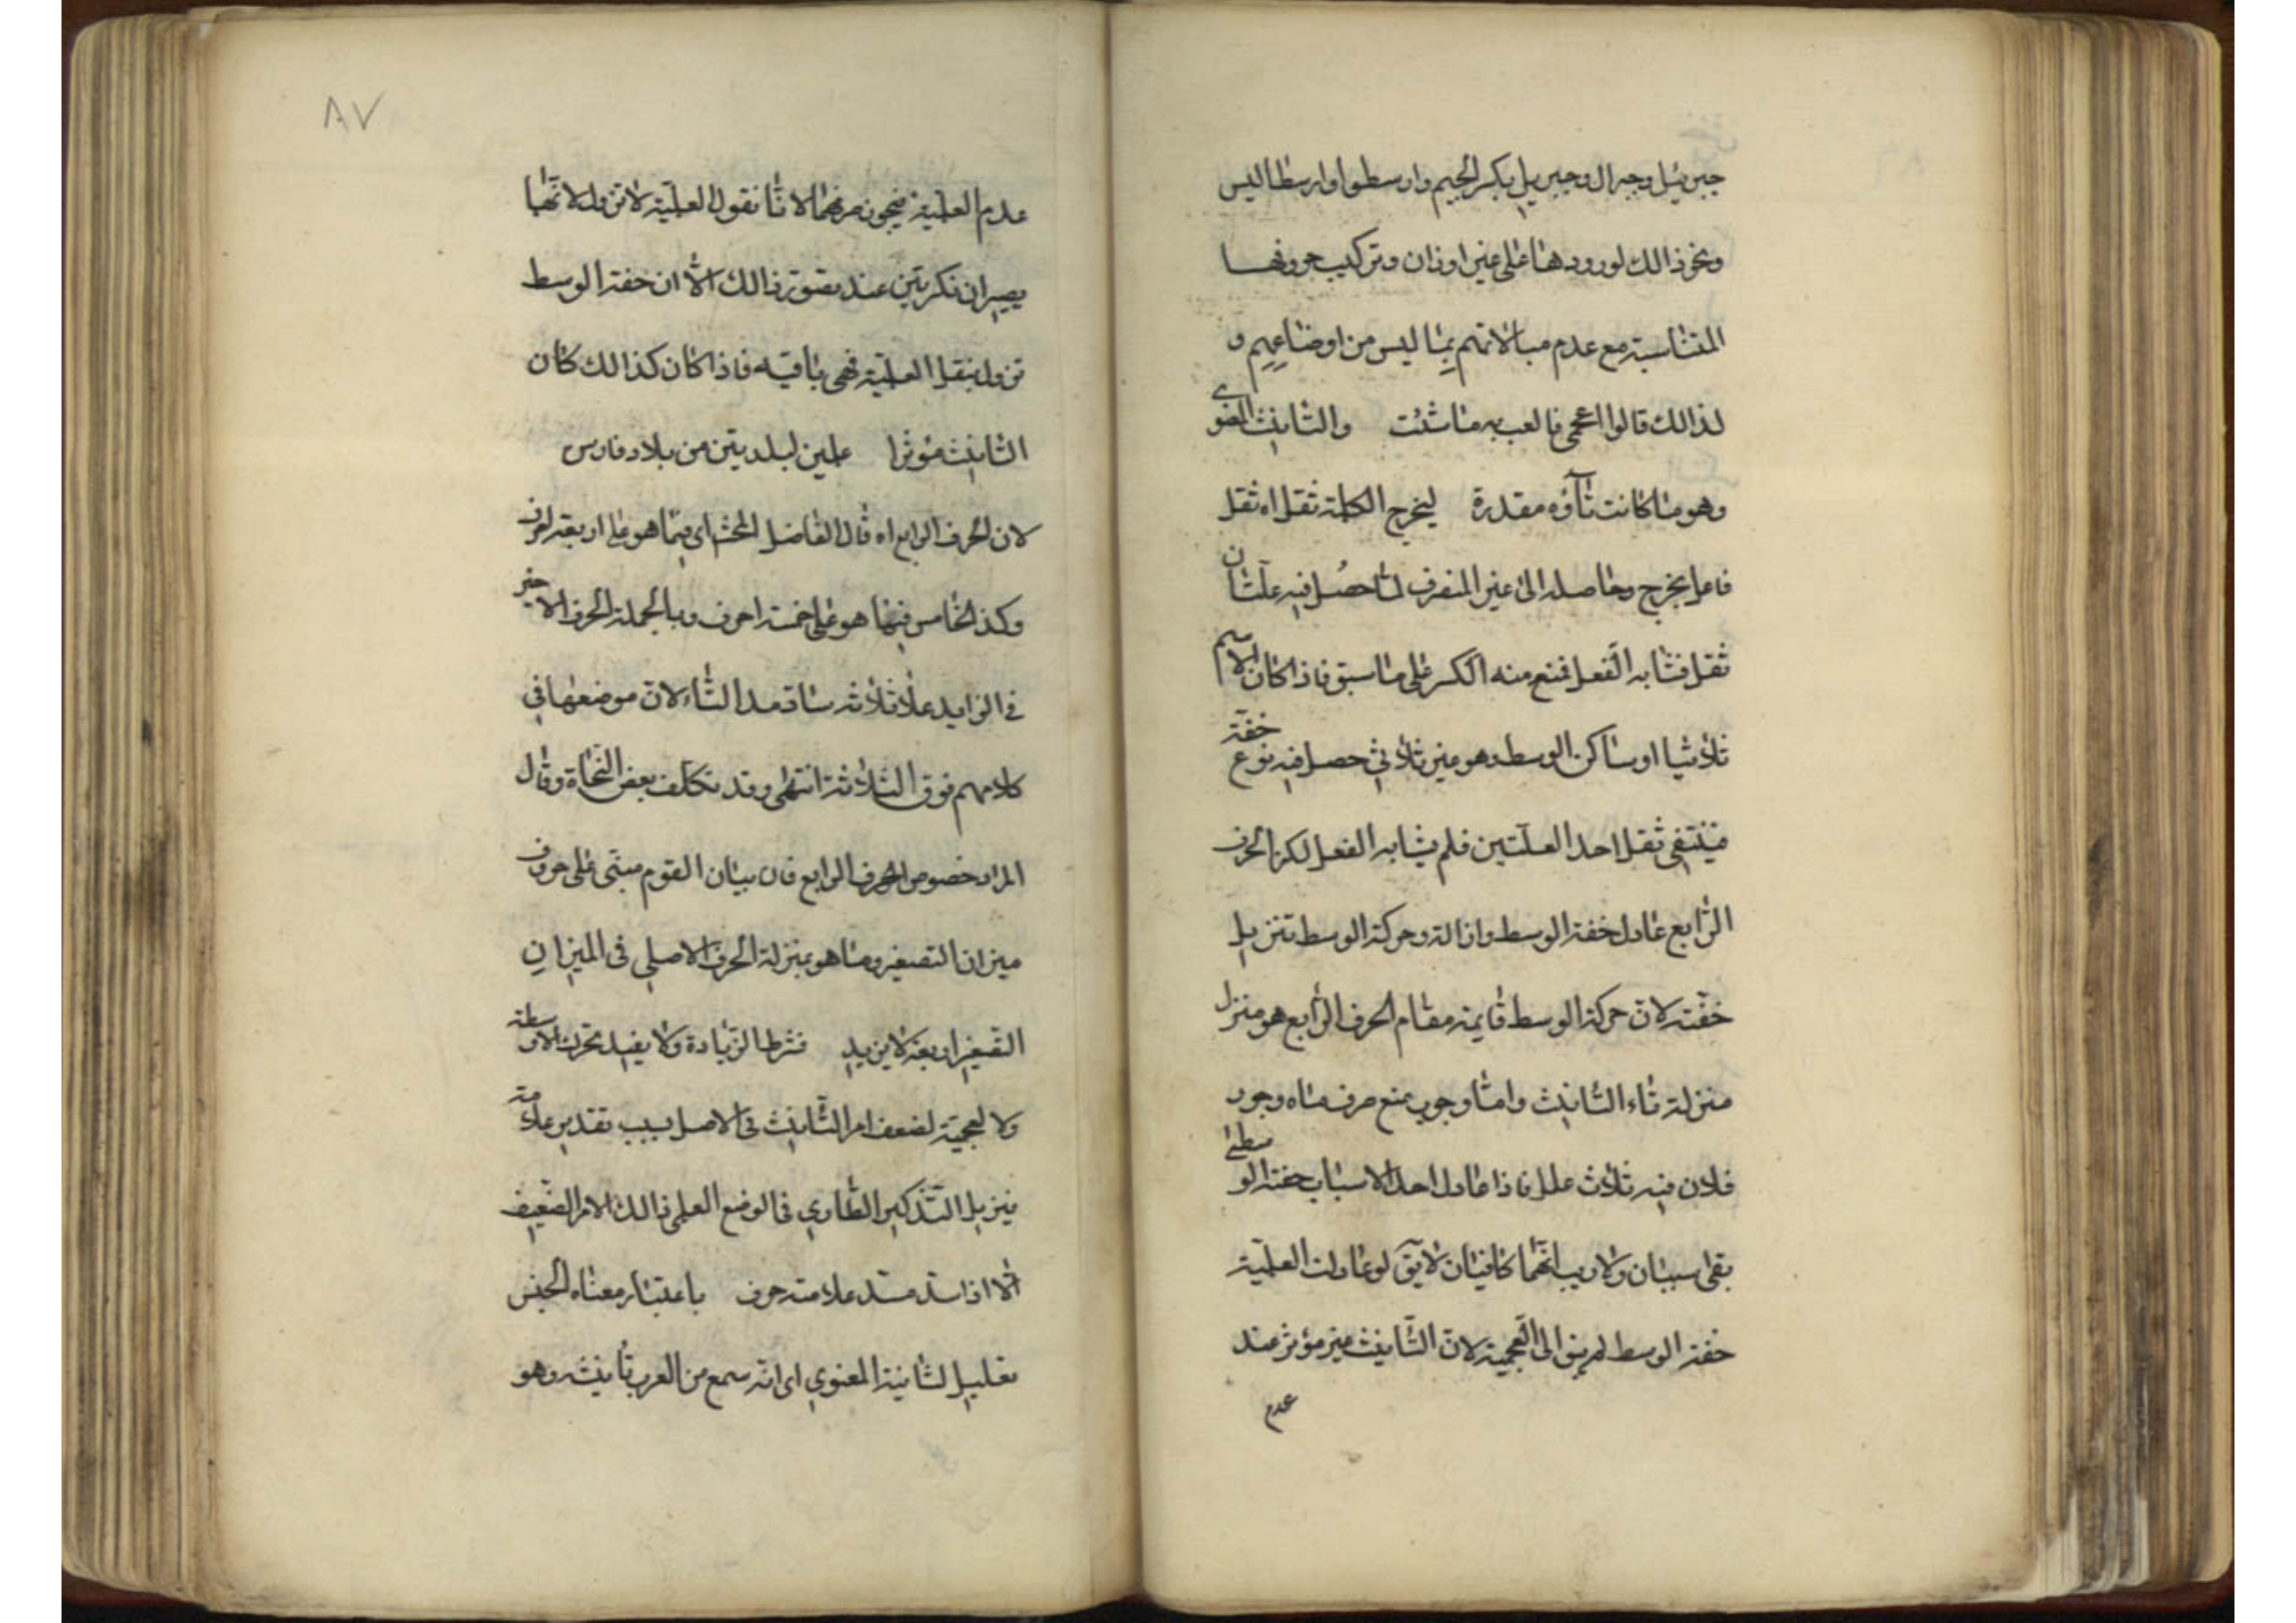 جبرئيل وجبرال وجبريل بكسر الجيم وارسطو وارسطاليس
ونحو ذالك لورودها على غير اوزان وتركيب حروفها
المتناسبة مع عدم مبالاتهم بما ليس من اوضاعهم و
لذالك قالوا اعجمى فالعب به ما شئت والتانيث المعنوى
وهو ما كانت تآؤه مقدرة ليخرج الكلمة ثقل اه ثقل
فاعل يخرج وحاصله الى غير المنصرف لما حصل فيه علتان
ثقل فشابه الفعل فمنع منه الكسر على ما سبق فاذا كان الاسم
ثلاثيا او ساكن الوسط وهو غير ثلاثي حصل فيه نوع خفة
فينتفى ثقل احد العلتين فلم يشابه الفعل لكن الحرف
الرابع عادل خفة الوسط وازالة وحركة الوسط تنزيل
خفته لان حركة الوسط قايمة مقام الحرف الرابع هو منزل
منزلة تاء التانيث واما وجوب منع صرف ماه وجور
فلان فيه ثلاث علل فاذا عادل احد الاسباب خفة الوسطى
بقى سببان ولا ريب انهما كافيان لا يق لو عادلت العلمية
خفة الوسط لم يبق الى العجمية لان التانيث غير مؤثر عند
عدم
٨٧
عدم العلمية فيجوز صرفهما لانا نقول العلمية لا تزول لانها
يصيران نكرتين عند تصور ذالك الا ان خفة الوسط
تزول بثقل العلمية فهى باقيه فاذا كان كذالك كان
التانيث مؤثرا علمين لبلديتين من بلاد فارس
لان الحرف الرابع اه قال الفاضل المحشى اى فيما هو على اربعة احرف
وكذ الخامس فيما هو على خمسة احرف وبالجملة الحرف الاخير
فى الزايد على ثلاثة ساد مسد التاء لان موضعها فى
كلامهم فوق الثلاثة انتهى وقد تكلف بعض النحاة وقال
المراد خصوص الحرف الرابع فان بيان القوم مبنى على حروف
ميزان التصغير وما هو بمنزلة الحرف الاصلى فى الميزان
التصغير اربعة لا يزيد فشرط الزيادة ولا يفيد تحرك الاوسطه
ولا لعجمية لضعف امر التانيث فى الاصل بسبب تقدير علامته
فيزيل التذكير الطارى فى الوضع العلمى ذالك الامر الضعيف
الا اذا سد مسد علامته حرف باعتبار معناه الجنس
تعليل لتانيثه المعنوي اى انه سمع من العرب تانيثه وهو